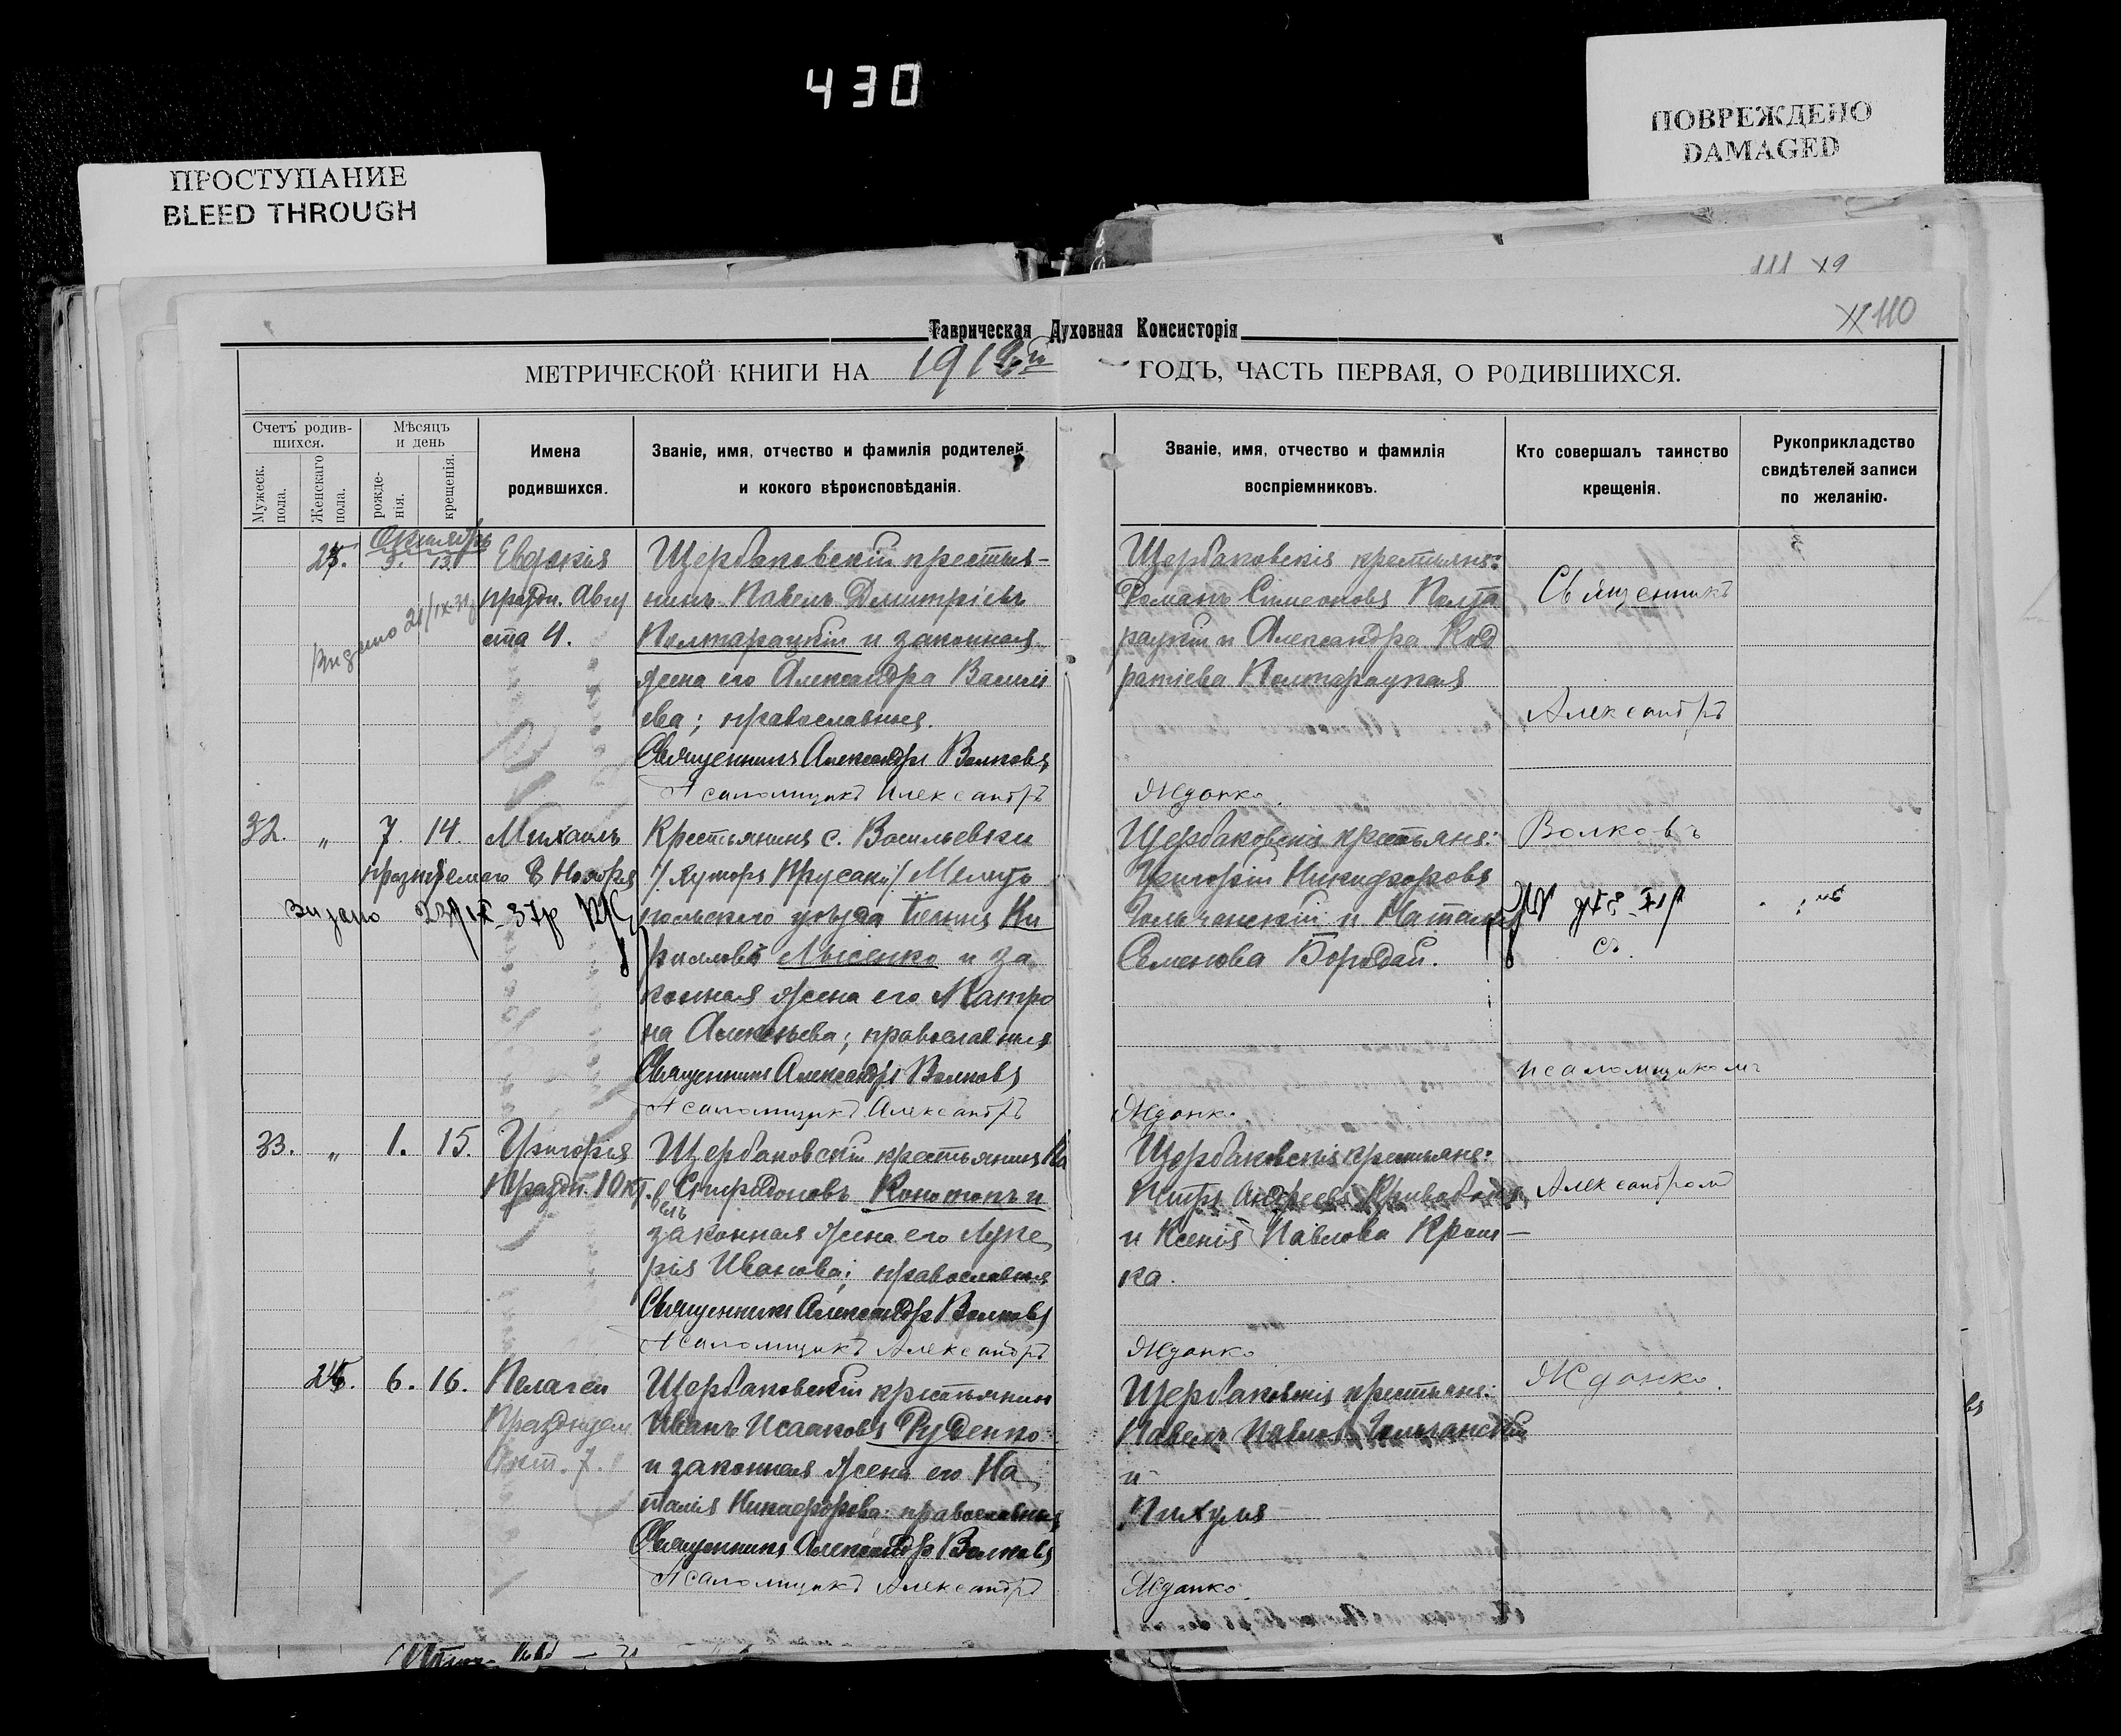 430
ПРОСТУПАНИЕ
BLEED THROUGH
ПОВРЕЖДЕНО
DAMAGED
111
110
Таврическая Духовная Консисторія
МЕТРИЧЕСКОЙ КНИГИ НА 191 ГОДЪ, ЧАСТЬ ПЕРВАЯ, О РОДИВШИХСЯ.
Счетъ родившихся.
Мужеск. пола.
Женскаго пола.
Мѣсяцъ и день
рожденія.
крещенія.
Имена
родившихся.
Званіе, имя, отчество и фамилія родителей
и кокого вѣроисповѣданія.
Званіе, имя, отчество и фамилія
воспріемниковъ.
Кто совершалъ таинство
крещенія.
Рукоприкладство
свидѣтелей записи
по желанію.
Октябрь
3. 13. Евдокія
праздн. Авгу
ста 4.
Щербаковскій крестья-
нинъ Павелъ Димитріевъ
Полторацкій и законная
жена его Александра Васили
ева; православныя.
Священникъ Александръ Волковъ
Псаломщикъ Александръ Жданко.
Щербаковскія крестьяне:
Романъ Симеоновъ Полто
рацкій и Александра Код
ратіева Полторацкая
Священникъ
Александръ
Волковъ
съ
псаломщикомъ
Александромъ
Жданко.
32. „ 7. 14. Михаилъ
празнуемаго 8 Ноября
Крестьянинъ с. Васильевки
Мелито
польскаго уѣзда Ки
рилловъ Лысенко и за
конная жена его Матро
на Алексѣева; православныя
Священникъ Александръ Волковъ
Псаломщикъ Александръ Жданко.
Щербаковскія крестьяне:
Григорій Никифоровъ
Гольчанскій и Наталія
Семенова Бородай.
33. „ 1. 15. Григорія
Праздн. 1 Окт.
Щербаковскій крестьянинъ Па
велъ Спиридоновъ Кононопъ и
законная жена его Луке
рія Иванова; православныя
Священникъ Александръ Волковъ
Псаломщикъ Александръ Жданко
Щербаковскія крестьяне:
Петръ Андреевъ
и Ксенія Павлова
ка.
6. 16. Пелагеи
Празднуем
Окт. 7.
Щербаковскій крестьянин
Иванъ Исааковъ Руденко
и законная жена его На
талія Никифорова: православныя
Священникъ Александръ Волковъ
Псаломщикъ Александръ Жданко
Щербаковскія крестьяне:
Павелъ Павловъ Гольчанскій
и
Пихуля